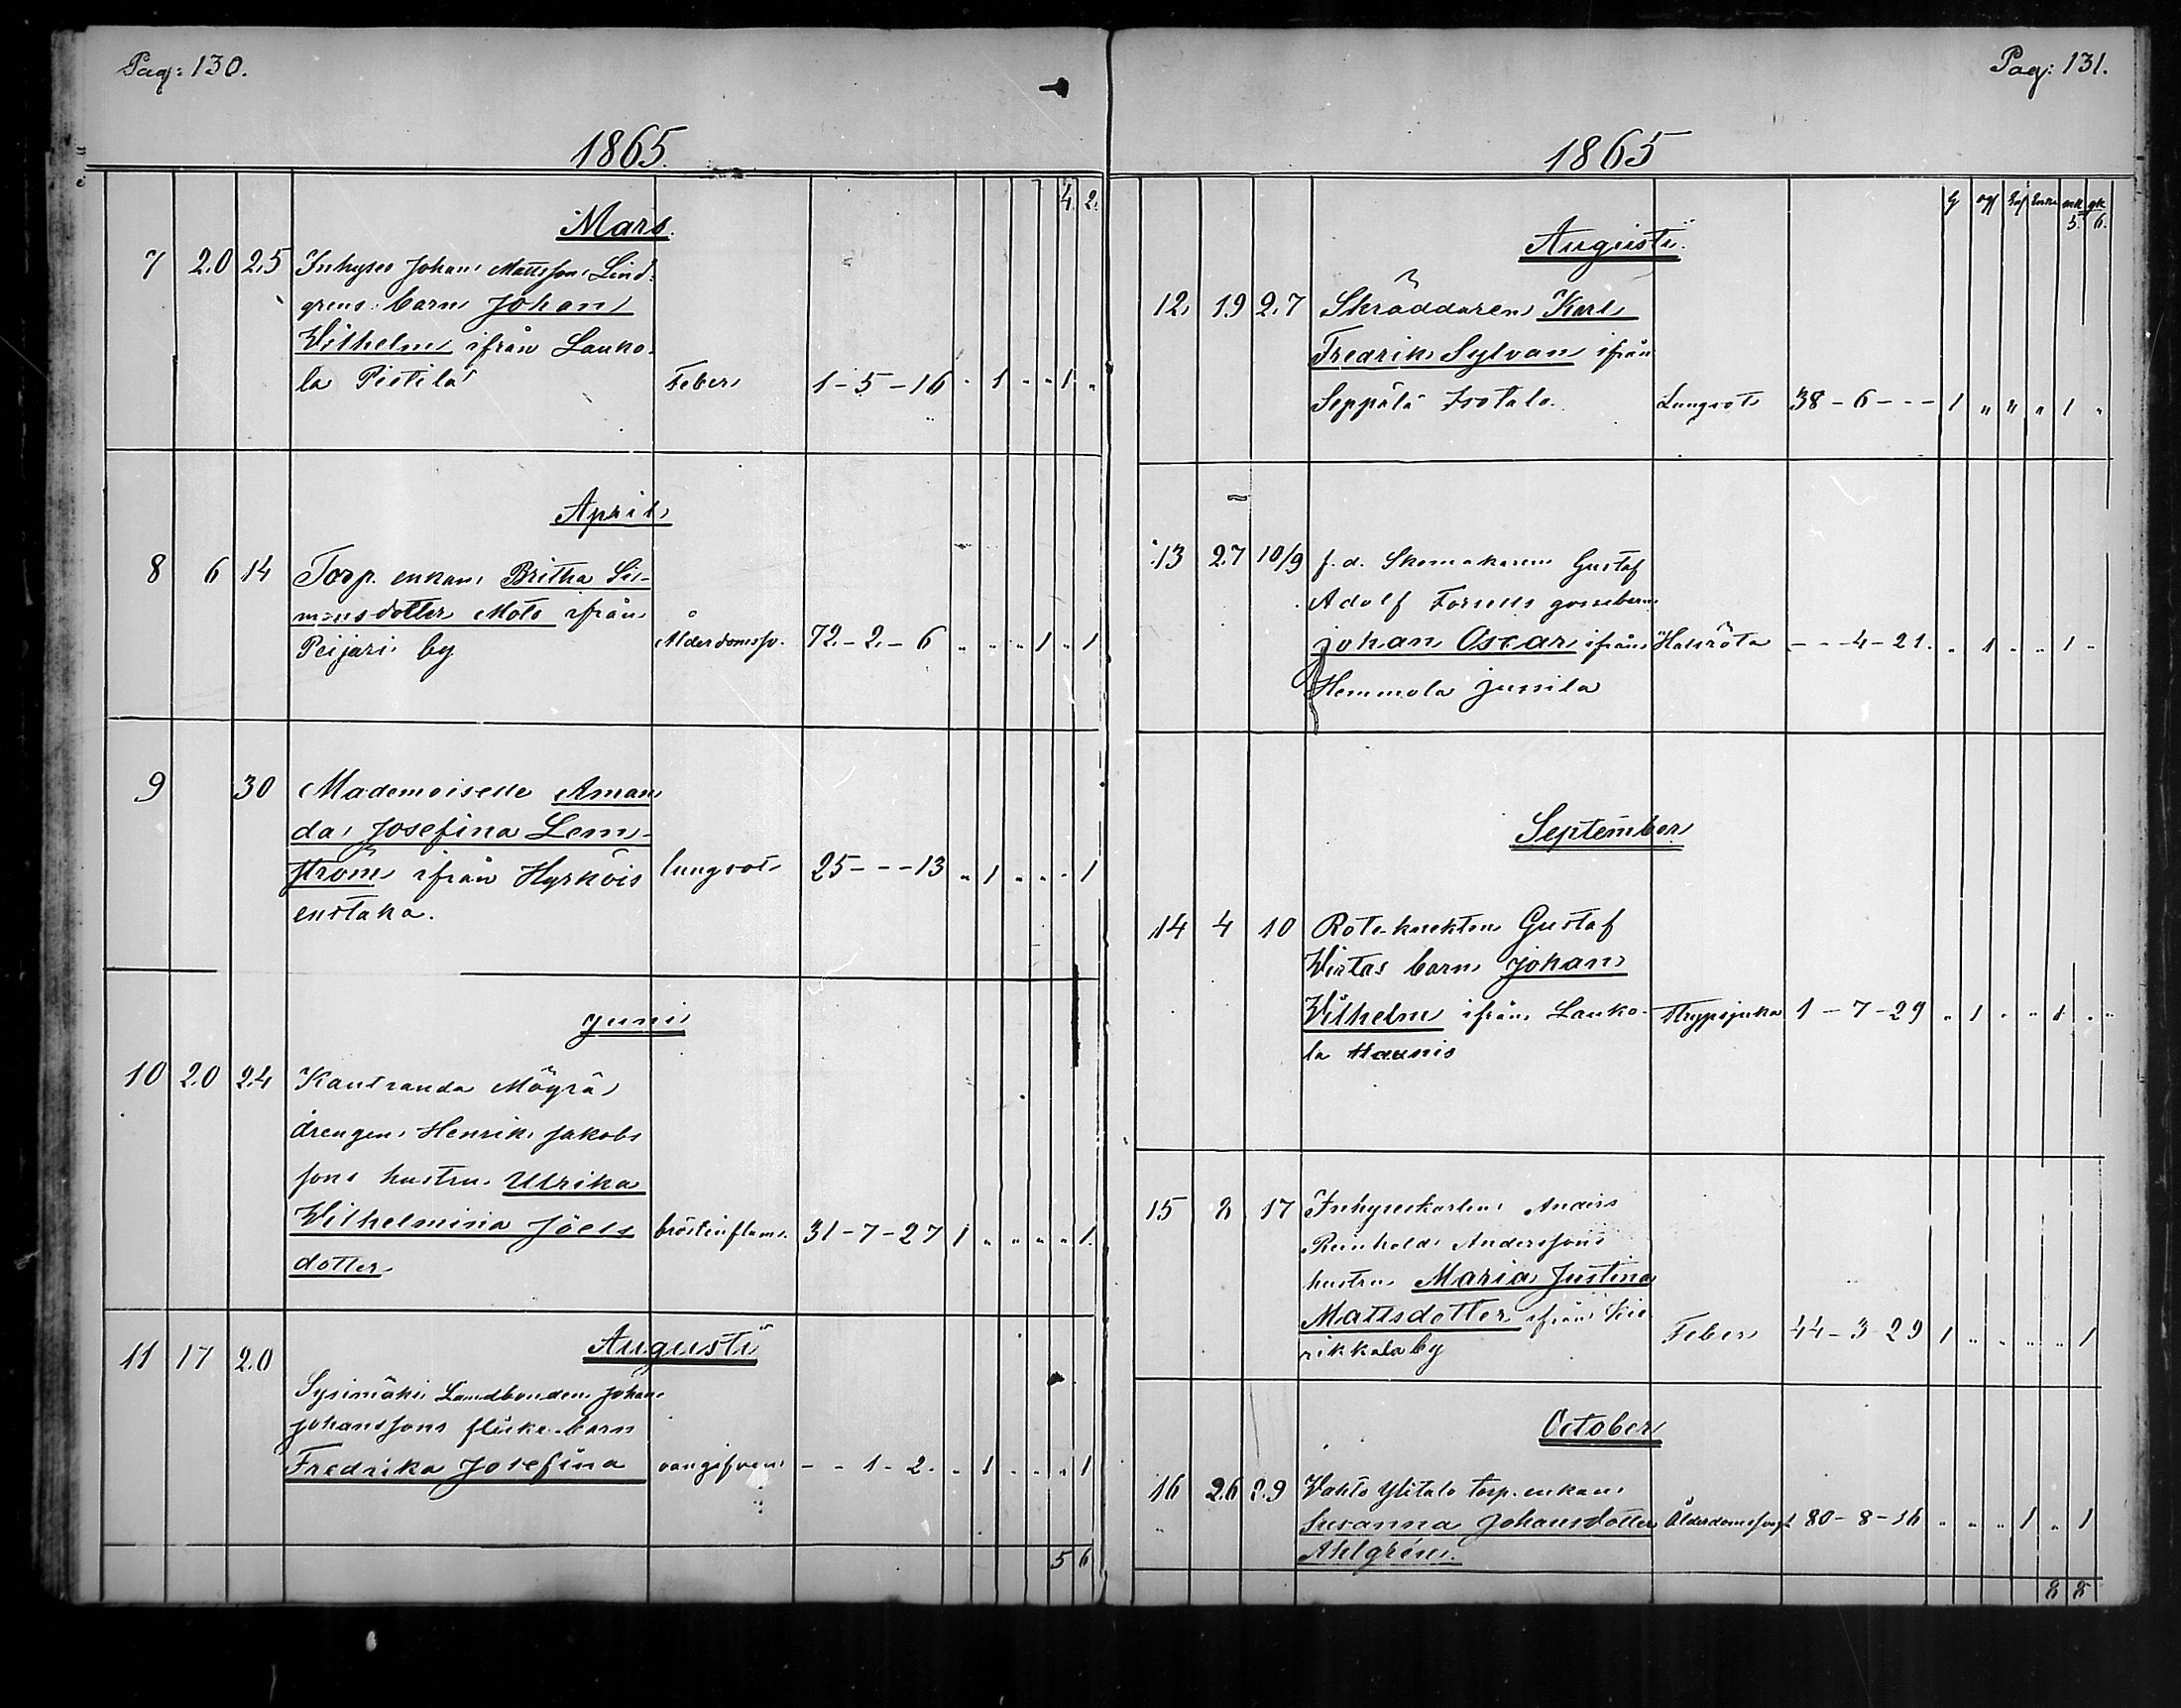 Pag: 130.
1865.
4. 2.
Mars.
7 20 25 Inhyses Johan Mattsson Lind-
grens barn Johan
Wilhelm ifrån Lauko-
la Pietilä Feber 1-5-16 " 1 " " 1 "
April
8 6 14 Torp. enkan Britha Si-
monsdotter Moto ifrån
Peijari by Ålderdomssv. 72-2-6 " " " 1 " 1
9 30 Mademoiselle Aman
da Josefina Lem-
ström ifrån Hyrköis
enstaka. lungsot 25---13 " 1 " " " 1
Juni
10 20 24 Kautranda Mäyrä
drengen Henrik Jakobs
sons hustru Ulrika
Wilhelmina Joels
dotter bröstinflam. 31-7-27 1 " " " " 1
Augusti
11 17 20
Sysimäki Landbonden Johan
Johanssons flicke barn
Fredrika Josefina oangifven --1-2 " 1 " " " 1
5 6
Pag: 131.
1865
g ogf Enkl Enka mk qk
5. 6.
Augusti
12 19 27 Skräddaren Karl
Fredrik Sylvan ifrån
Seppälä Isotalo. Lungsot 38-6--- 1 " " " 1 "
13 27 10/9 f.d. Skomakaren Gustaf
Adolf Forsells gossebarn
Johan Oscar ifrån Halsröta ---4-21. " 1 " " 1 "
Hemmola Jussila
September
14 4 10 Rote-knekten Gustaf
Wirtas barn Johan
Wilhelm ifrån Lauko- Strypsjuka 1-7-29 " 1 " " 1 "
la Haunis
15 8 17 Inhyseskarlen Anders
Reinhold Anderssons
hustru Maria Justina
Mattsdotter ifrån Kie
rikkala by Feber 44-3-29 1 " " " " 1
October
16 26 29 Wahto Ylitalo torp. enkan
Susanna Johansdotter Ålderdomssvagh 80-8-16 " " " 1 " 1
Ahlgrén.
8 8